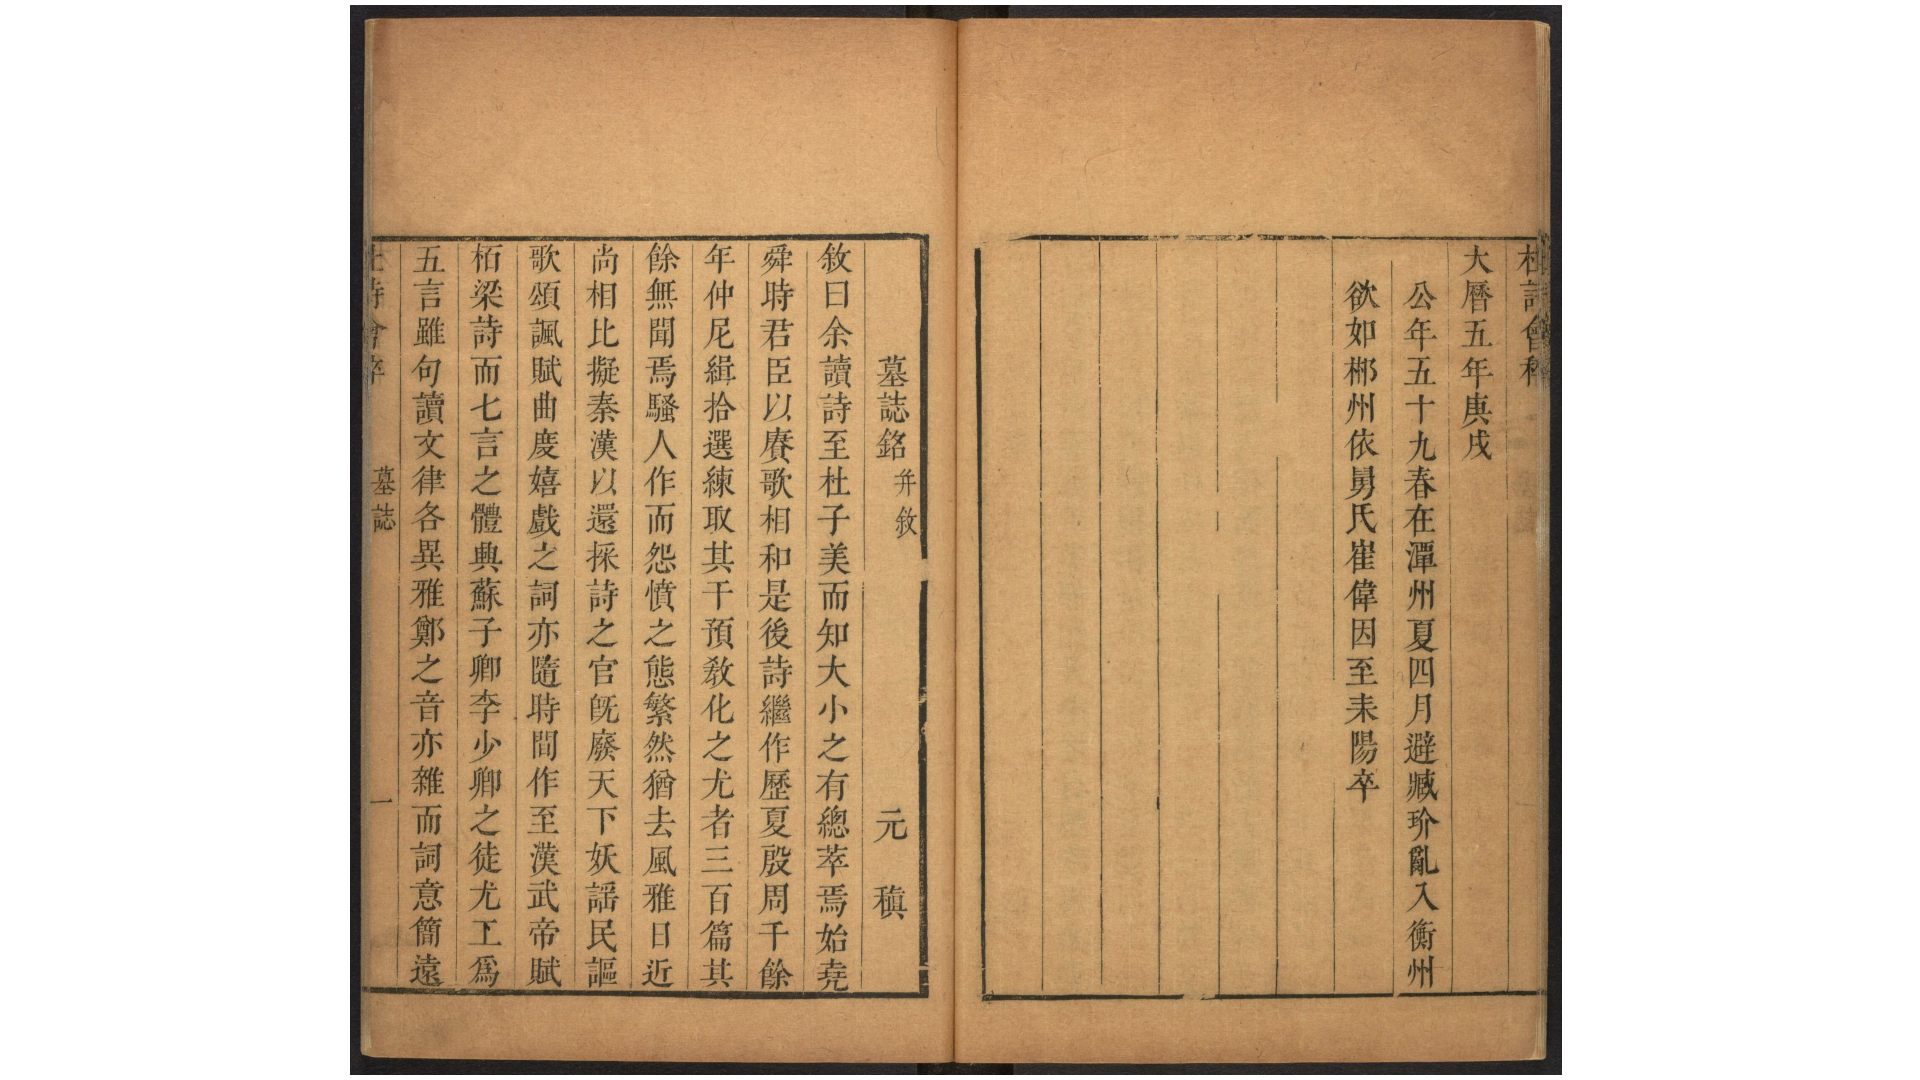 杜詩會稡
大曆五年庚戌
公年五十九春在潭州夏四月避臧玠亂入衡州
欲如郴州依舅氏崔偉因至耒陽卒
墓誌銘并敘 元稹
敘曰余讀詩至杜子美而知大小之有總萃焉始堯
舜時君臣以賡歌相和是後詩繼作歷夏殷周千餘
年仲尼緝拾選練取其干預教化之尤者三百篇其
餘無聞焉騷人作而怨憤之態繁然猶去風雅日近
尚相比擬秦漢以還採詩之官既廢天下妖謡民謳
歌頌諷賦曲度嬉戲之詞亦隨時間作至漢武帝賦
栢梁詩而七言之體興蘇子卿李少卿之徒尤工爲
五言雖句讀文律各異雅鄭之音亦雜而詞意簡遠
杜詩會稡 墓誌 一